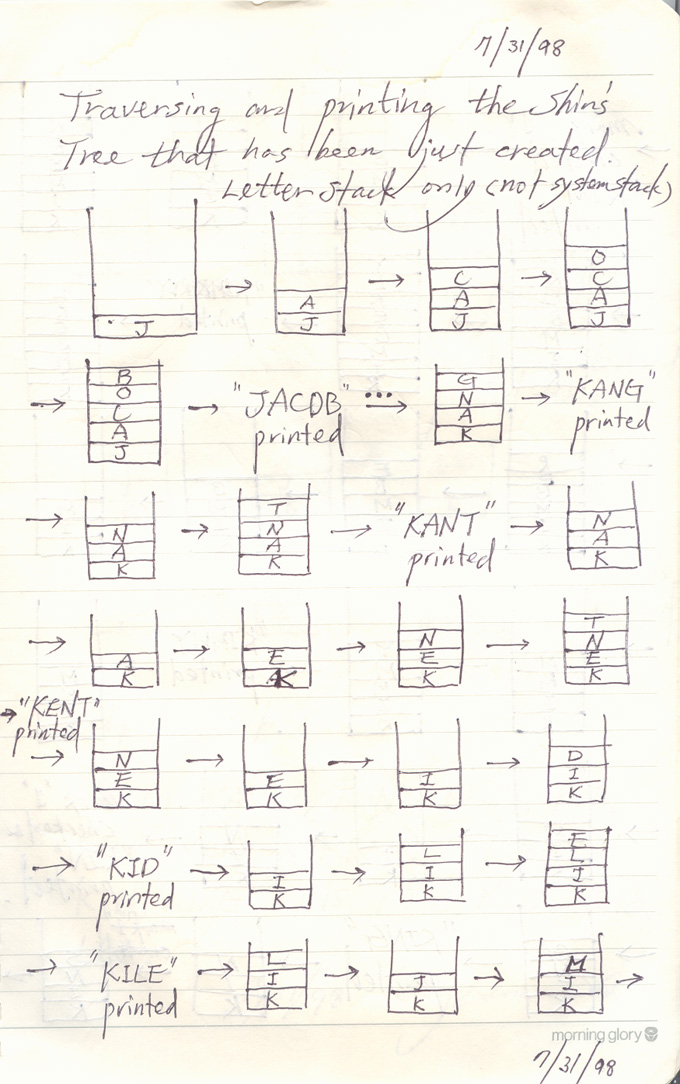 7/31/98
Traversing and printing the Shin's
Tree that has been just created.
Letter stack only (not system stack)
J → A J → C A J → O C A J
→ B O C A J → "JACOB" printed ...→ G N A K → "KANG" printed
→ N A K → T N A K → "KANT" printed → N A K
→ A K → E K → N E K → T N E K
→ "KENT" printed
→ N E K → E K → I K → D I K
→ "KID" printed → I K → L I K → E L I K
→ "KILE" printed → L I K → I K → M I K →
morning glory
7/31/98